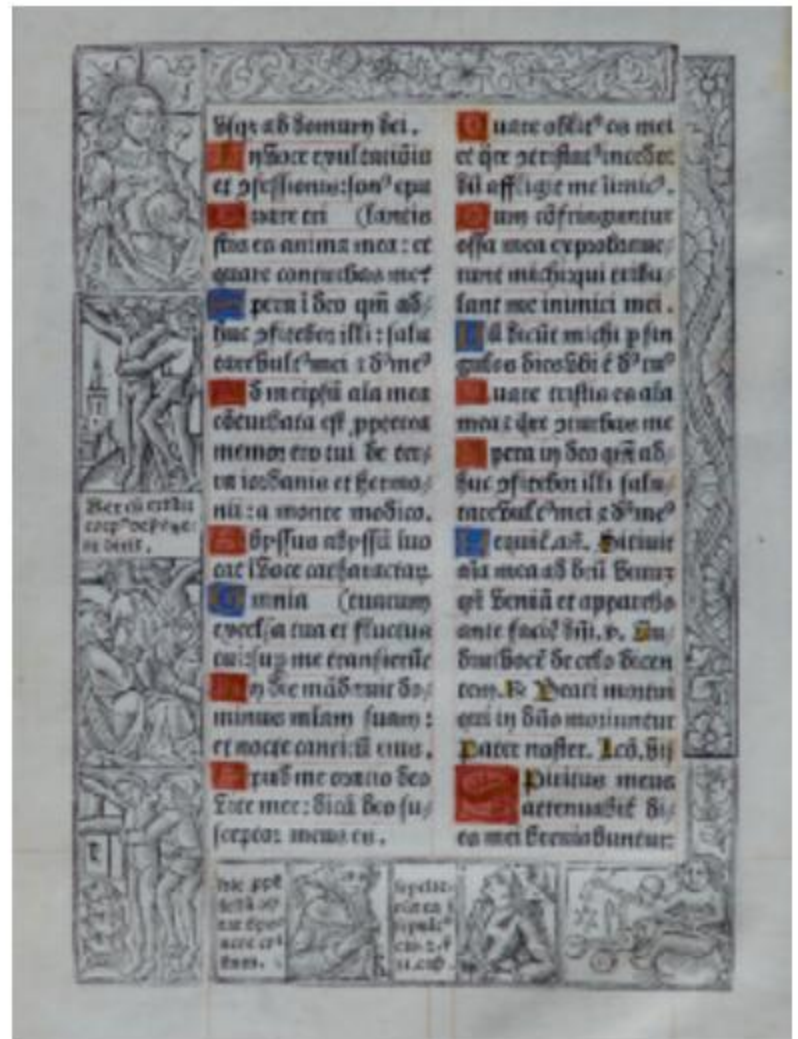 Usqz ad domum dei.
In voce exultatiōis
et ꝯfessionis:son⁹ epu
Quare tri (lantis
stis es anima mea: et
quare conturbas me?
Spera ī deo qm̄ ad/
huc ꝯfitebor illi: salu
tare vult⁹ mei ⁊ d⁹ me⁹
Ad meipsū aīa mea
cōturbata est ꝓpterea
memor ero tui de ter/
ra iordanis et hermo/
nii: a monte modico.
Abyssus abyssū īuo
cat ī voce catharactaꝝ
Omnia (tuarum
excelsa tua et fluctus
tui: suꝑ me transierūt
In die mādauit do/
minus mīam suam:
et nocte canticū eius.
Apud me oratio deo
vite mee: dicā deo su/
sceptor meus es.
Quare oblit⁹ es mei
et qre ꝯtristat⁹ incedo:
dū affligit me inimic⁹.
Dum cōfringuntur
ossa mea exprobraue/
runt michi: qui tribu/
lant me inimici mei.
Dū dicūt michi ꝑ sin
gulos dies: vbi ē d⁹ tu⁹
Quare tristis es aīa
mea: ⁊ qre ꝯturbas me
Spera in deo qm̄ ad/
huc ꝯfitebor illi salu/
tare vult⁹ mei ⁊ d⁹ me⁹
Requiē. añ. Sitiuit
aīa mea ad deū viuuz
qñ veniā et apparebo
ante faciē dñi. v. Au/
diui vocē de celo dicen
tem. R Beati mortui
qui in dño moriuntur
Pater noster. Lcō. vij
Spiritus meus
attenuabit᷑ di/
es mei breuiabuntur: